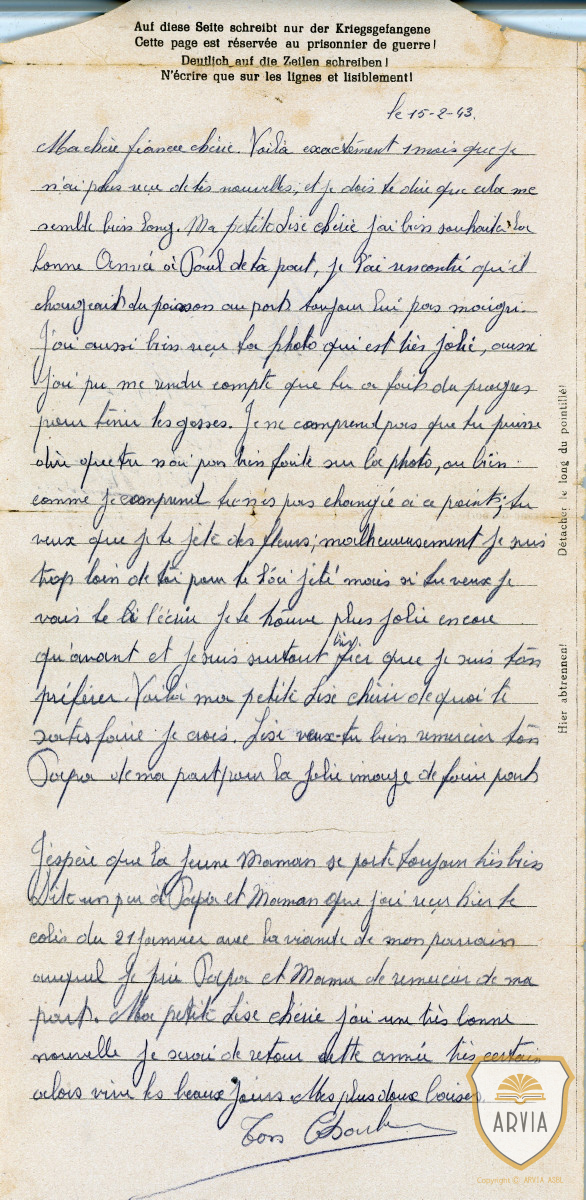 Auf diese Seite schreibt nur der Kriegsgefangene
Cette page est réservée au prisonnier de guerre!
Deutlich auf die Zeilen schreiben!
N'écrire que sur les lignes et lisiblement!
le 15-2-43.
Ma chère fiancée chérie. Voilà exactement 1 mois que je
n'ai plus reçu de tes nouvelles, et je dois te dire que cela me
semble bien long. Ma petite Lise chérie j'ai bien souhaité la
bonne Année à Paul de ta part, je l'ai rencontré qu'il
chargeait du poisson au port toujour lui pas maigri.
J'ai aussi bien reçu ta photo qui est très jolie, aussi
j'ai pu me rendre compte que tu a fait du progres
pour tenir les gosses. Je ne comprend pas que tu puisse
dire que tu n'ai pas bien faite sur la photo, ou bien
comme je comprend tu n'es pas changée à ce point; tu
veux que je te jète des fleurs; malheureusement je suis
trop loin de toi pour te jeté mais si tu veux je
vais te l'écrire je te trouve plus jolie encore
qu'avant et je suis surtout bien fier que je suis ton
préférer. Voilà ma petite Lise chérie de quoi te
satisfaire je crois. Lise veux-tu bien remercier ton
Papa de ma part pour la jolie image de faire part
J'espère que la jeune Maman se porte toujour très bien
Dite un peu à Papa et Maman que j'ai reçu hier le
colis du 21 janvier avec la viande de mon parrain
auquel je prie Papa et Maman de remercier de ma
part. Ma petite Lise chérie j'ai une très bonne
nouvelle je serai de retour cette année très certain
alors vive les beaux jours. Mes plus doux baises.
Ton
Détacher le long du pointillé!
Hier abtrennen!
ARVIA
Copyright © ARVIA ASBL